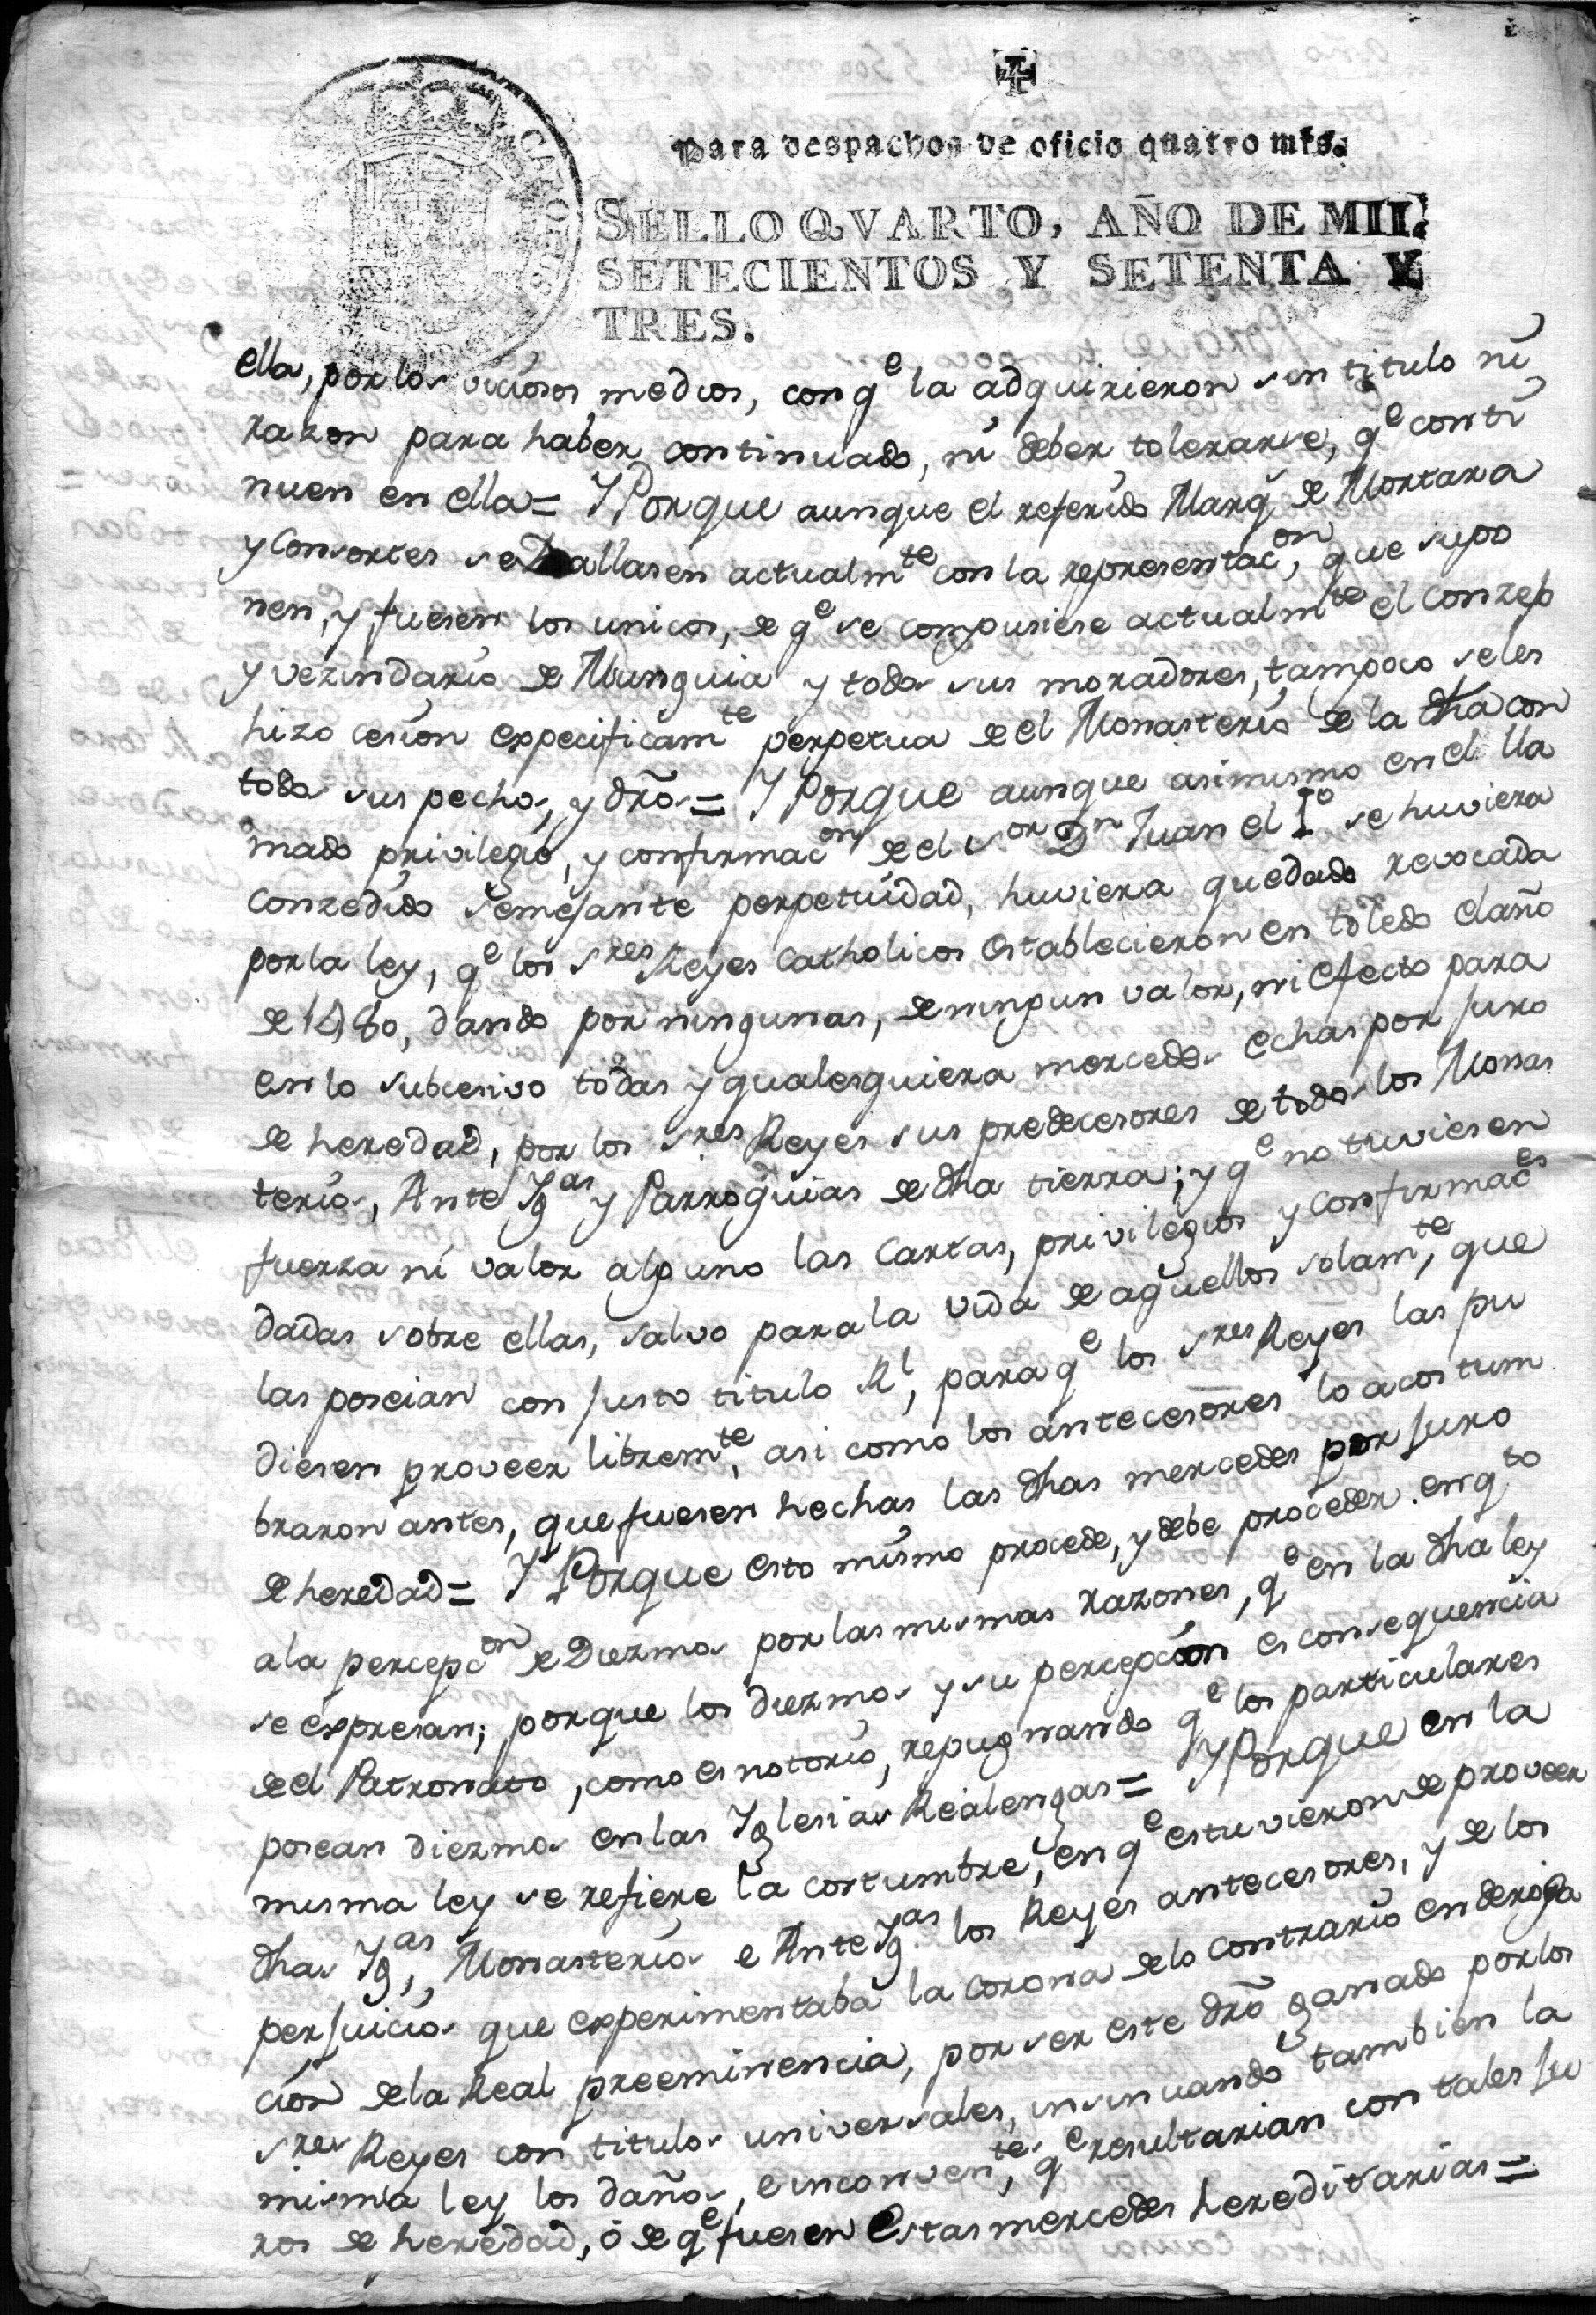 Para despachos de oficio quatro mrs.
SELLO QVARTO, AÑO DE MIL
SETECIENTOS Y SETENTA Y
TRES.
ella, por los viciosos medios, con qe la adquirieron sin titulo ni
razon para haber continuado, ni deber tolerarse, qe conti
nuen en ella = Y Porque aunque el referido Marq̃ de Mortara
y Consortes se hallasen actualmte con la representacon, que supo
nen, y fuesen los unicos, de qe se compusiese actualmte el conzejo
y vezindario de Munguia y todos sus moradores, tampoco seles
hizo cesion especificamte perpetua de el Monasterio de la dha con
todos sus pechos, y dr̃os = Y Porque aunque asimismo en el lla
mado privilegio, y confirmacon de el Sor Dn Juan el Io se huviera
conzedido semejante perpetuidad, huviera quedado revocada
por la ley, qe los Sres Reyes Catholicos establecieron en toledo el año
de 1480, dando por ningunas, de ningun valor, ni efecto para
en lo subcesivo todas y qualesquiera mercedes echas por juro
de heredad, por los Sres Reyes sus predecesores de todos los Monas
terios, Ante Ygas y Parroquias de dha tierra; y qe no tuviesen
fuerza ni valor alguno las Cartas, privilegios y confirmaces
dadas sobre ellas, salvo para la vida de aquellos solamte, que
las poseian con justo titulo Rl, para qe los Sres Reyes las pu
diesen proveer libremte, asi como los antecesores lo acostum
braron antes, que fuesen hechas las dhas mercedes por juro
de heredad = Y Porque esto mismo procede, y debe proceder en qto
a la percepcon de Diezmos por las mismas razones, qe en la dha ley
se expresan; porque los diezmos y su percepcion es consequencia
de el Patronato, como es notorio, repugnando qe los particulares
posean diezmos en las Yglesias Realengas = Y Porque en la
misma ley se refiere la costumbre, en qe estuvieron de proveer
dhas Ygas, Monasterios e Ante Ygas los Reyes antecesores, y de los
perjuicios que experimentaba la Corona de lo contrario en deroga
cion de la Real preeminencia, por ser este dr̃o ganado por los
Sres Reyes con titulos universales, insinuando tambien la
misma ley los daños, e inconventes, qe resultarian con tales ju
ros de heredad, ó de qe fuesen estas mercedes hereditarias =